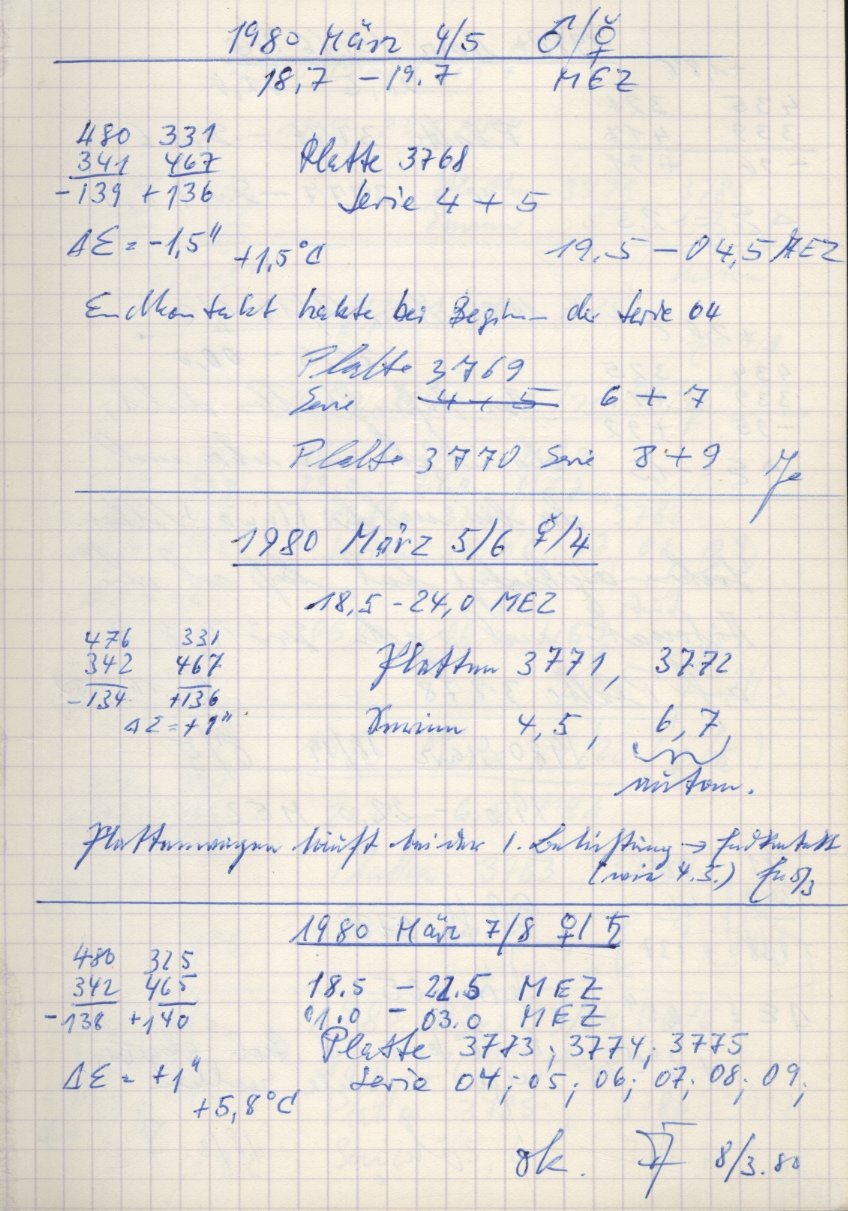 1980 März 4/5 ♂/☿
18,7 – 19.7 MEZ
480 331
341 467
-139 +136
Platte 3768
Serie 4 + 5
ΔE = -1,5"
+1,5°C
19,5 – 04,5 MEZ
Endkontakt hakte bei Beginn der Serie 04
Platte 3769
Serie 4 + 5 6 + 7
Platte 3770 Serie 8 + 9
1980 März 5/6 ☿/♃
18,5 - 24,0 MEZ
476 331
342 467
-134 +136
ΔE = +1"
Platten 3771, 3772
Serien 4,5, 6,7,
autom.
Plattenwagen läuft bei der 1. Belichtung → Endkontakt
(wie 4.3.)
1980 März 7/8 ♀/♄
480 325
342 465
-138 +140
18.5 – 22.5 MEZ
01.0 – 03.0 MEZ
Platte 3773; 3774; 3775
ΔE = +1"
Serie 04; 05; 06; 07; 08; 09;
+5,8°C
ok. 8/3.80